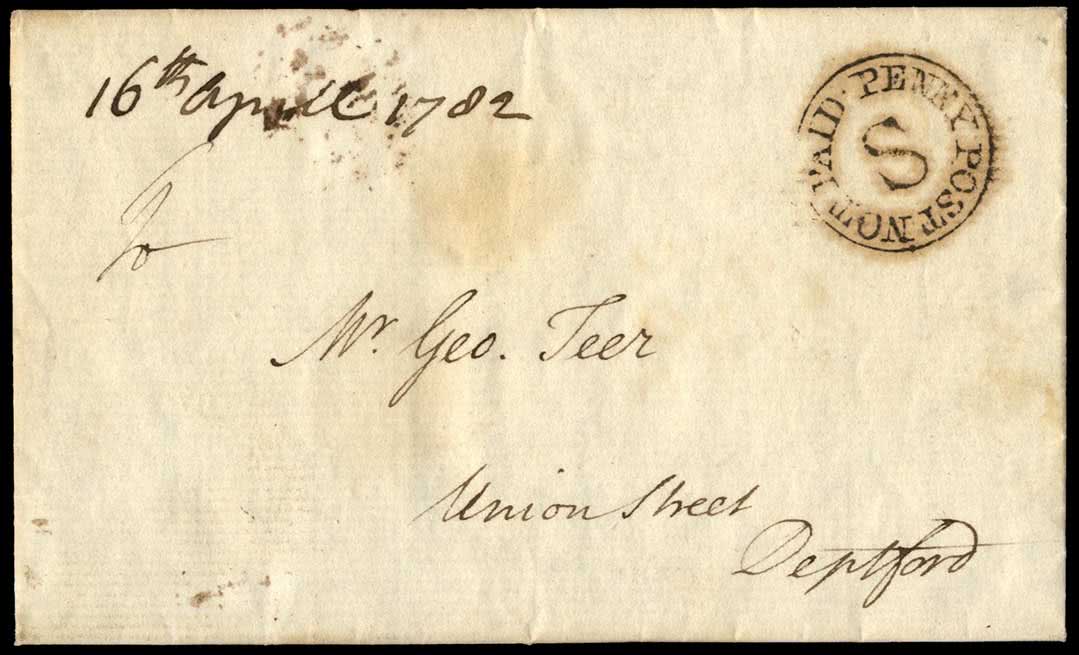 16th Aprill 1782
PENNY POST NOT PAID
S
To
Mr. Geo. Teer
Union Street
Deptford